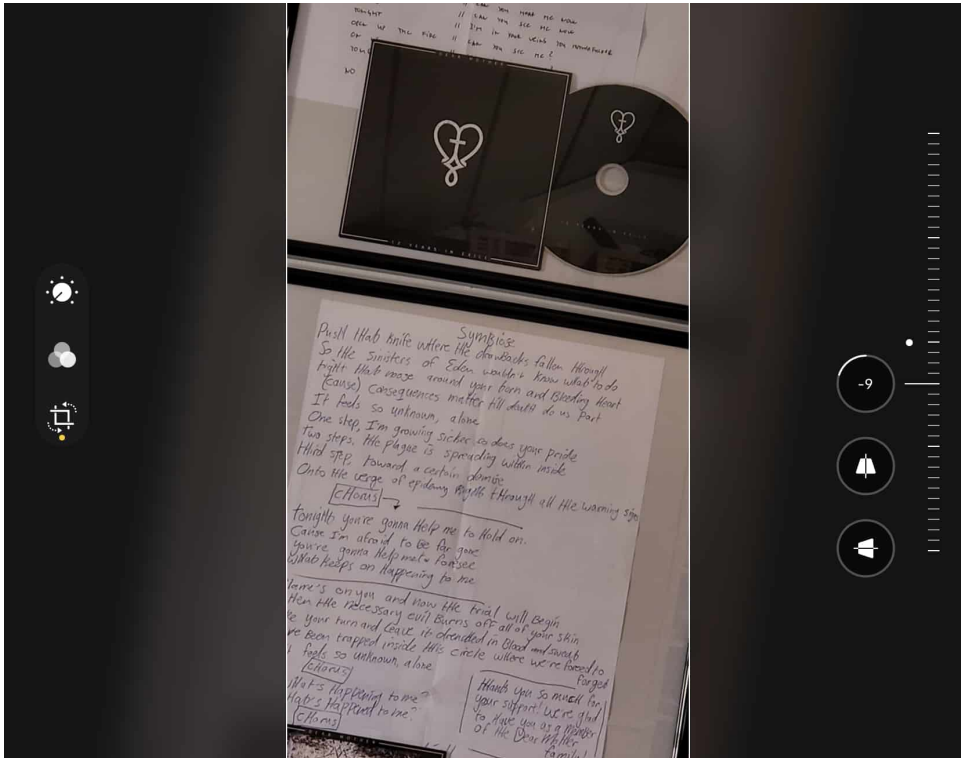 TONIGHT // CAN YOU HEAR ME NOW
// CAN YOU SEE ME NOW
OVER THE FIRE // I'M IN YOUR VEINS YOU
OF // CAN YOU SEE ME?
NO
DEAR MOTHER
12 YEARS IN EXILE
12 YEARS IN EXILE
Symbiose
Push that knife where the drawbacks fallen through
So the sinisters of Eden wouldn't know what to do
tight that noose around your torn and Bleeding Heart
(cause) consequences matter till death do us part
It feels so unknown, alone
One step, I'm growing sicker so does your pride
two steps, the plague is spreading within inside
third step, toward a certain demise
Onto the verge of epidemy Right through all the warning signs
CHorus
tonight you're gonna Help me to Hold on.
Cause I'm afraid to be far gone
you're gonna Help me to foresee
What Keeps on Happening to me
Blame's on you and now the trial will Begin
then the necessary evil Burns off all of your skin
your turn and leave it drenched in Blood and sweat
been trapped inside this circle where we're forced to
forget
feels so unknown, alone
CHorus
What's Happening to me?
What's Happened to me?
CHorus
thank you so much for
your support! We're glad
to Have you as a member
of the Dear Mother
family!
DEAR MOTHER
-9